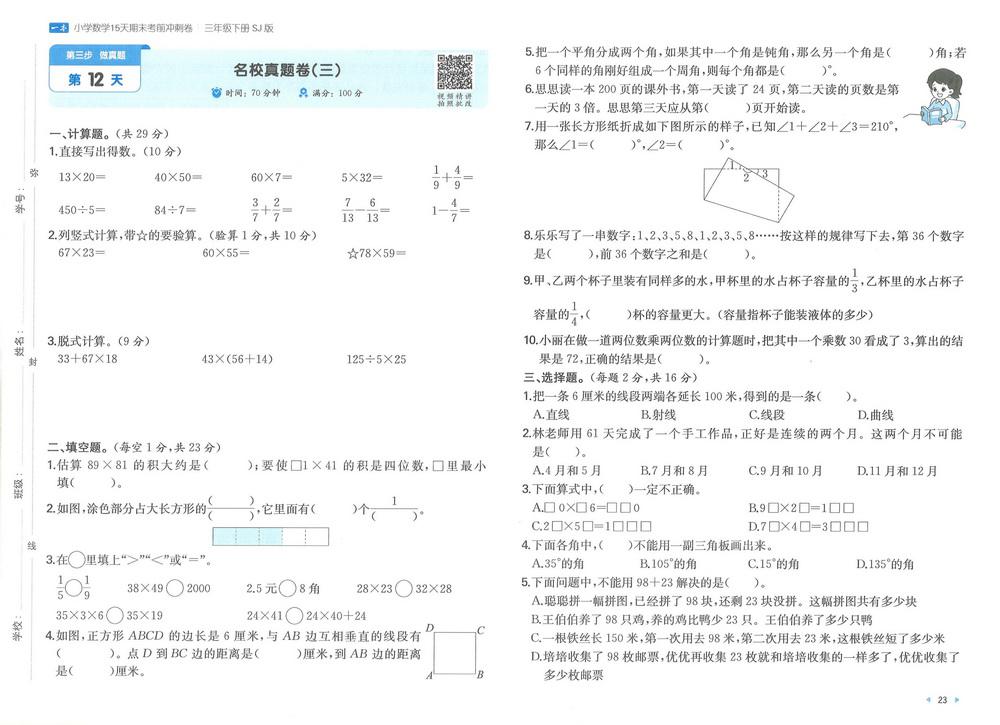 一本 小学数学15天期末考前冲刺卷 三年级下册 SJ 版
第三步 做真题
第 12 天
名校真题卷(三)
时间:70 分钟 满分:100 分
视频精讲
拍照批改
学号:
姓名:
班级:
学校:
弥
封
线
一、计算题。(共 29 分)
1.直接写出得数。(10 分)
13×20= 40×50= 60×7= 5×32= 1/9+4/9=
450÷5= 84÷7= 3/7+2/7= 7/13−6/13= 1−4/7=
2.列竖式计算,带☆的要验算。(验算 1 分,共 10 分)
67×23= 60×55= ☆78×59=
3.脱式计算。(9 分)
33+67×18 43×(56+14) 125÷5×25
二、填空题。(每空 1 分,共 23 分)
1.估算 89×81 的积大约是( );要使□1×41 的积是四位数,□里最小
填( )。
2.如图,涂色部分占大长方形的( )/( ),它里面有( )个1/( )。
3.在○里填上“>”“<”或“=”。
1/5○1/9 38×49○2000 2.5 元○8 角 28×23○32×28
35×3×6○35×19 24×41○24×40+24
4.如图,正方形 ABCD 的边长是 6 厘米,与 AB 边互相垂直的线段有
( )。点 D 到 BC 边的距离是( )厘米,到 AB 边的距离
是( )厘米。
D C
A B
5.把一个平角分成两个角,如果其中一个角是钝角,那么另一个角是( )角;若
6 个同样的角刚好组成一个周角,则每个角都是( )°。
6.思思读一本 200 页的课外书,第一天读了 24 页,第二天读的页数是第
一天的 3 倍。思思第三天应从第( )页开始读。
7.用一张长方形纸折成如下图所示的样子,已知∠1+∠2+∠3=210°,
那么∠1=( )°,∠2=( )°。
1 2 3
8.乐乐写了一串数字:1、2、3、5、8、1、2、3、5、8……按这样的规律写下去,第 36 个数字
是( ),前 36 个数字之和是( )。
9.甲、乙两个杯子里装有同样多的水,甲杯里的水占杯子容量的1/3,乙杯里的水占杯子
容量的1/4,( )杯的容量更大。(容量指杯子能装液体的多少)
10.小丽在做一道两位数乘两位数的计算题时,把其中一个乘数 30 看成了 3,算出的结
果是 72,正确的结果是( )。
三、选择题。(每题 2 分,共 16 分)
1.把一条 6 厘米的线段两端各延长 100 米,得到的是一条( )。
A.直线 B.射线 C.线段 D.曲线
2.林老师用 61 天完成了一个手工作品,正好是连续的两个月。这两个月不可能
是( )。
A.4 月和 5 月 B.7 月和 8 月 C.9 月和 10 月 D.11 月和 12 月
3.下面算式中,( )一定不正确。
A.□0×□6=□□0 B.9□×2□=1□□
C.2□×5□=1□□□ D.7□×4□=3□□□
4.下面各角中,( )不能用一副三角板画出来。
A.35°的角 B.105°的角 C.15°的角 D.135°的角
5.下面问题中,不能用 98+23 解决的是( )。
A.聪聪拼一幅拼图,已经拼了 98 块,还剩 23 块没拼。这幅拼图共有多少块
B.王伯伯养了 98 只鸡,养的鸡比鸭少 23 只。王伯伯养了多少只鸭
C.一根铁丝长 150 米,第一次用去 98 米,第二次用去 23 米,这根铁丝短了多少米
D.培培收集了 98 枚邮票,优优再收集 23 枚就和培培收集的一样多了,优优收集了
多少枚邮票
23